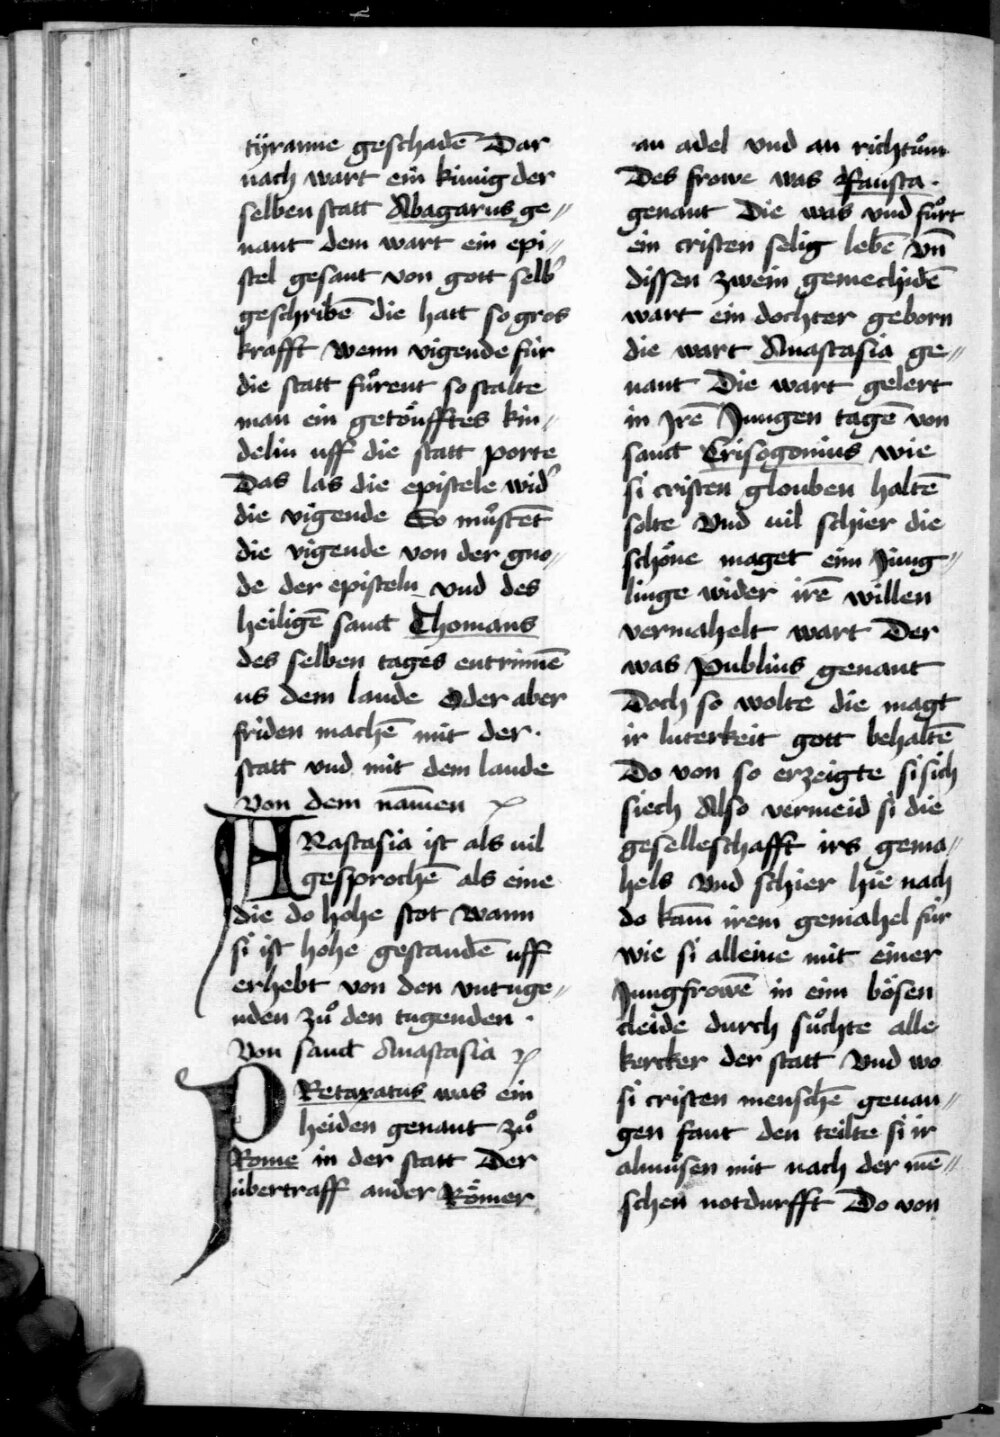 tÿranne geschadē Dar
nach wart ein künig der
selben statt Abagarus ge〃
nant dem wart ein epi〃
stel gesant von gott selb᾽
geschribē die hatt so gros
krafft Wenn vigende für
die statt fuͦrent so stalte
man ein getoͤufftes kin〃
delin uff die statt porte
Das las die epistele wid᾽
die vigende So muͦstēt
die vigende von der gno〃
de der episteln vnd des
heiligē sanct Thomans
des selben tages entrinnē
us dem lande Oder aber
friden machē mit der·
statt vnd mit dem lande
Von dem nāmen
ANastasia ist als uil
gesprochē als eine
die do hohe stot Wann
si ist hohe gestandē uff
erhebt von den vntuge〃
nden zuͦ den tugenden ·
Von sanct Anastasia
PRetaxatus was ein
heiden genant zuͦ
Rome in der statt Der
übertraff ander Roͤmer
an adel vnd an richtuͦm
Des frowe was Fausta ·
genant Die was vnd fuͦrt
ein cristen selig lebē Vn̄
dissen zwein gemechidē
wart ein dochter geborn
die wart Anastasia ge〃
nant Die wart gelert
in Jrē Jungen tagē von
sanct Crisogonius wie
si cristen glouben haltē
solte Vnd uil schier die
schoͤne maget eim Jung〃
linge wider irē willen
vermahelt wart Der
was Publius genant
Doch so wolte die magt
ir luterkeit gott behaltē
Do von so erzeigte si sich
siech Also vermeid si die
geselleschafft irs gema〃
hels Vnd schier hie nach
do kam̄ irem gemahel für
wie si alleine mit einer
Jungfrowē in eim boͤsen
cleide durch suͦchte alle
kercker der statt Vnd wo
si cristen menschē geuan〃
gen fant den teilte si ir
almuͦsen mit nach der mē〃
schen notdurfft Do von